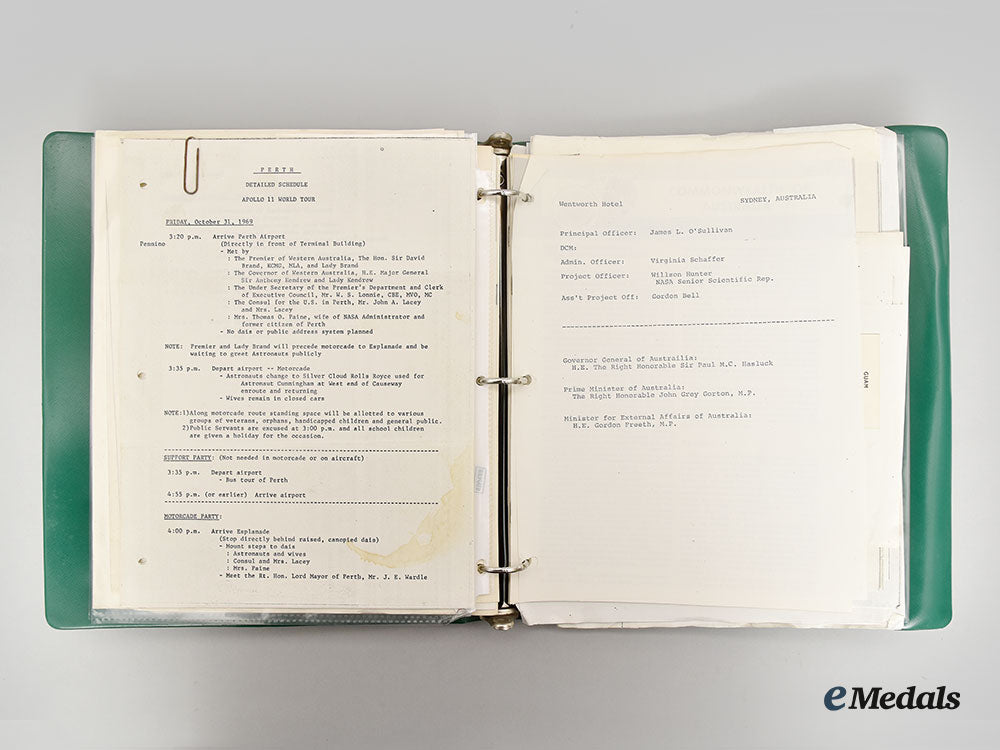 P E R T H
DETAILED SCHEDULE
APOLLO 11 WORLD TOUR
FRIDAY, October 31, 1969
3:20 p.m. Arrive Perth Airport
Pennino (Directly in front of Terminal Building)
- Met by
: The Premier of Western Australia, The Hon. Sir David
Brand, KCMG, MLA, and Lady Brand
: The Governor of Western Australia, H.E. Major General
Sir Anthony Kendrew and Lady Kendrew
: The Under Secretary of the Premier's Department and Clerk
of Executive Council, Mr. W. S. Lonnie, CBE, MVO, MC
: The Consul for the U.S. in Perth, Mr. John A. Lacey
and Mrs. Lacey
: Mrs. Thomas O. Paine, wife of NASA Administrator and
former citizen of Perth
- No dais or public address system planned
NOTE: Premier and Lady Brand will precede motorcade to Esplanade and be
waiting to greet Astronauts publicly
3:35 p.m. Depart airport -- Motorcade
- Astronauts change to Silver Cloud Rolls Royce used for
Astronaut Cunningham at West end of Causeway
enroute and returning
- Wives remain in closed cars
NOTE:1)Along motorcade route standing space will be allotted to various
groups of veterans, orphans, handicapped children and general public.
2)Public Servants are excused at 3:00 p.m. and all school children
are given a holiday for the occasion.
SUPPORT PARTY: (Not needed in motorcade or on aircraft)
3:35 p.m. Depart airport
- Bus tour of Perth
4:55 p.m. (or earlier) Arrive airport
MOTORCADE PARTY:
4:00 p.m. Arrive Esplanade
(Stop directly behind raised, canopied dais)
- Mount steps to dais
: Astronauts and wives
: Consul and Mrs. Lacey
: Mrs. Paine
- Meet the Rt. Hon. Lord Mayor of Perth, Mr. J. E. Wardle
Wentworth Hotel SYDNEY, AUSTRALIA
Principal Officer: James L. O'Sullivan
DCM:
Admin. Officer: Virginia Schaffer
Project Officer: Willson Hunter
NASA Senior Scientific Rep.
Ass't Project Off: Gordon Bell
Governor General of Austrailia:
H.E. The Right Honorable Sir Paul M.C. Hasluck
Prime Minister of Australia:
The Right Honorable John Grey Gorton, M.P.
Minister for External Affairs of Australia:
H.E. Gordon Freeth, M.P.
GUAM
eMedals